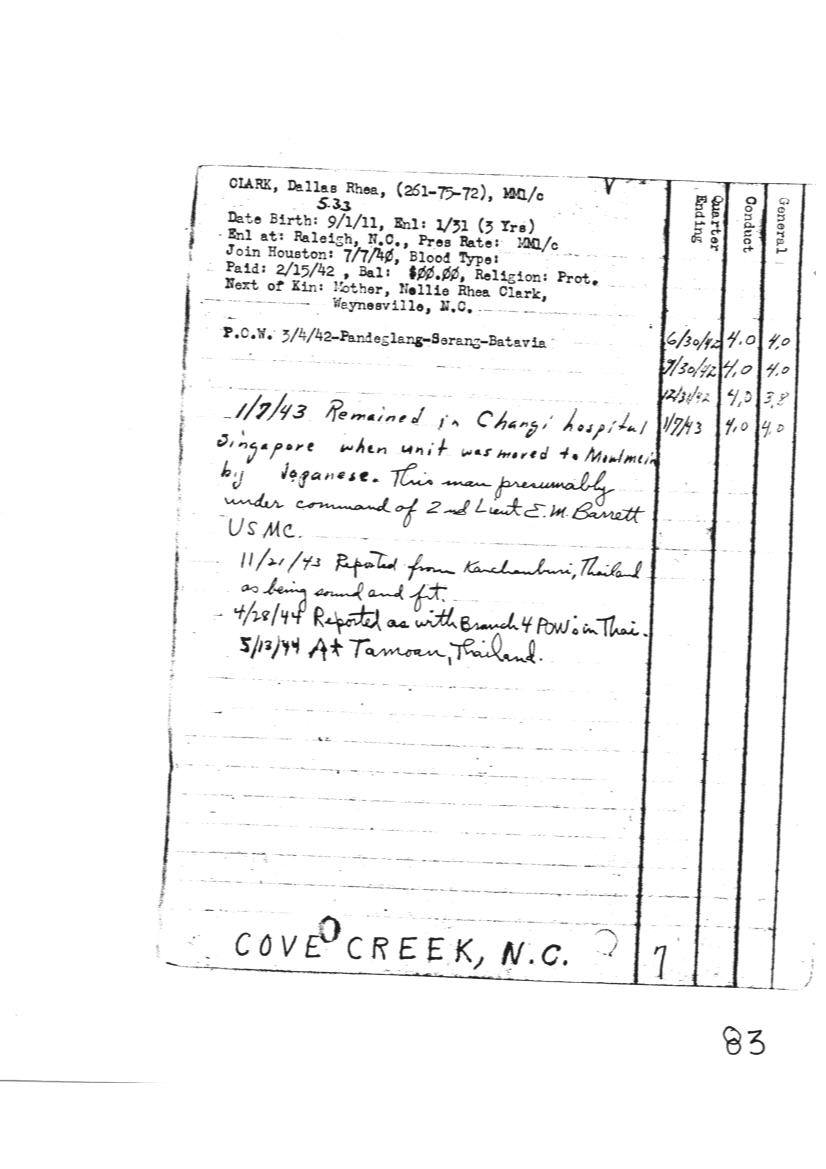 CLARK, Dallas Rhea, (261-75-72), MM1/c
5.33
Date Birth: 9/1/11, Enl: 1/31 (3 Yrs)
Enl at: Raleigh, N.C., Pres Rate: MM1/c
Join Houston: 7/7/40, Blood Type:
Paid: 2/15/42 , Bal: $00.00, Religion: Prot.
Next of Kin: Mother, Nellie Rhea Clark,
Waynesville, N.C.
P.O.W. 3/4/42-Pandeglang-Serang-Batavia
1/7/43 Remained in Changi hospital
Singapore when unit was moved to Moulmein
by Japanese. This man presumably
under command of 2nd Lieut E.M. Barrett
USMC.
11/21/43 Reported from Kanchanburi, Thailand
as being sound and fit.
4/28/44 Reported as with Branch 4 POW's in Thai.
5/13/44 At Tamoan, Thailand.
Quarter Ending
Conduct
General
6/30/42 4.0 4.0
9/30/42 4.0 4.0
12/31/42 4.0 3.8
1/7/43 4.0 4.0
COVE CREEK, N.C.
7
83